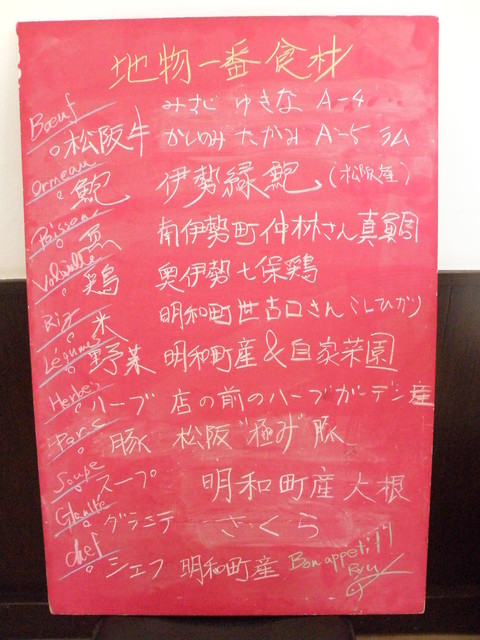 地物一番食材
Bœuf みすじ ゆきな A-4
松阪牛 かしのみ たかみ A-5 ラム
Ormeau
鮑 伊勢緑鮑 (松阪産)
Poisson
魚 南伊勢町仲林さん真鯛
Volaille
鶏 奥伊勢七保鶏
Riz
米 明和町世古口さんこしひかり
Légumes
野菜 明和町産&自家菜園
Herbes
ハーブ 店の前のハーブガーデン産
Porc
豚 松阪"極み"豚
Soupe
スープ 明和町産大根
Granite
グラニテ さくら
chef
シェフ 明和町産 Bon appetit!!
Ryu